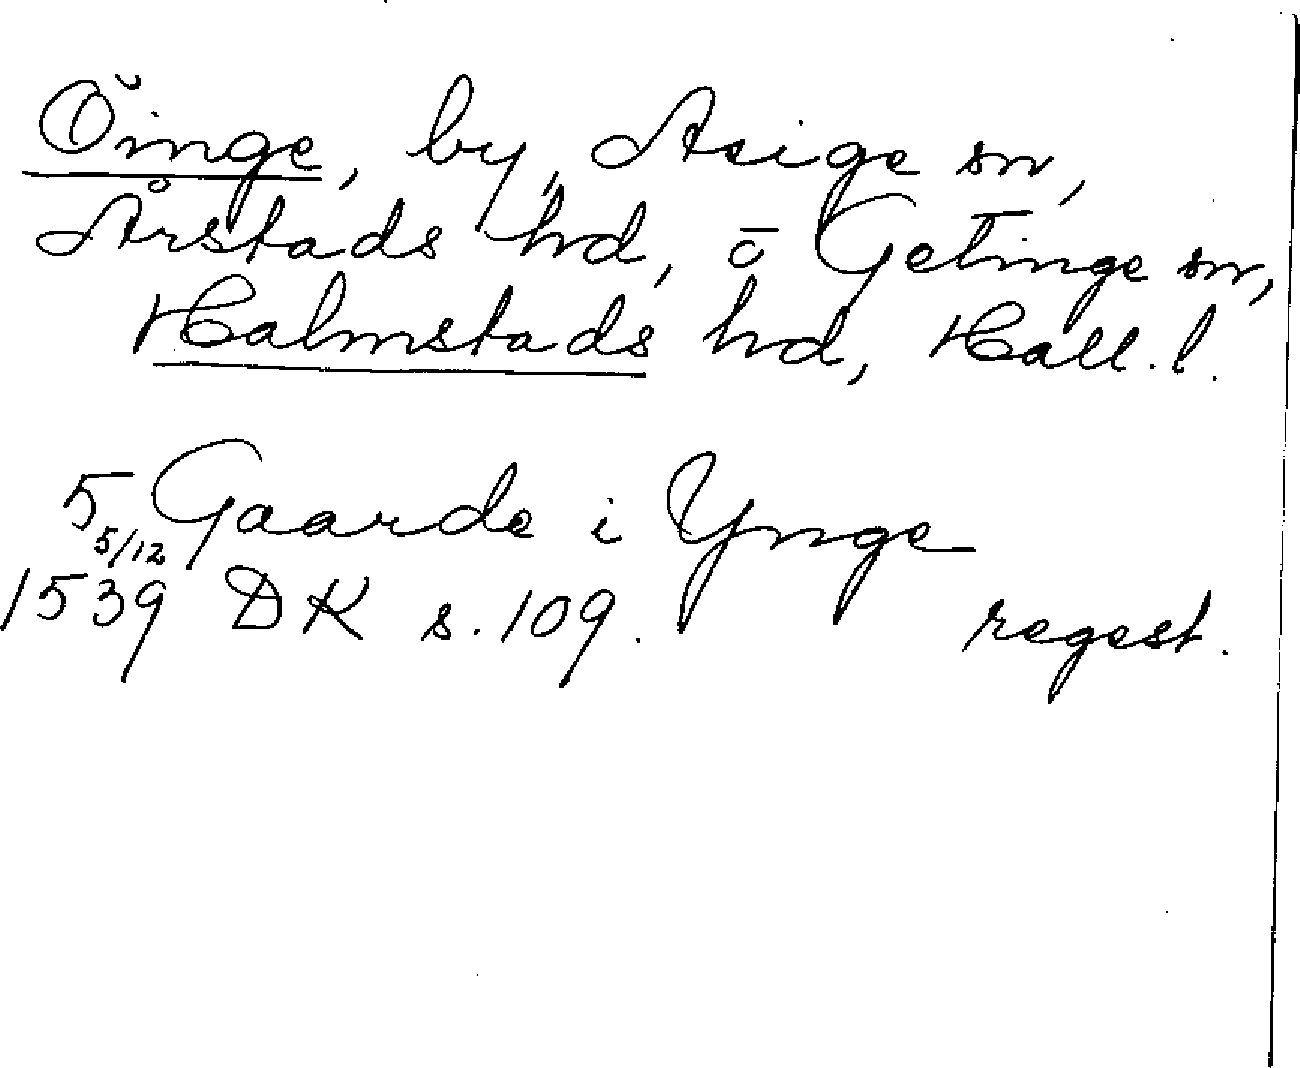 Öinge, by, Asige sn,
Årstads hd, o Getinge sn,
Halmstads hd, Hall. l.
5 Gaarde i Ynge
5/12
1539 DK s. 109. regest.